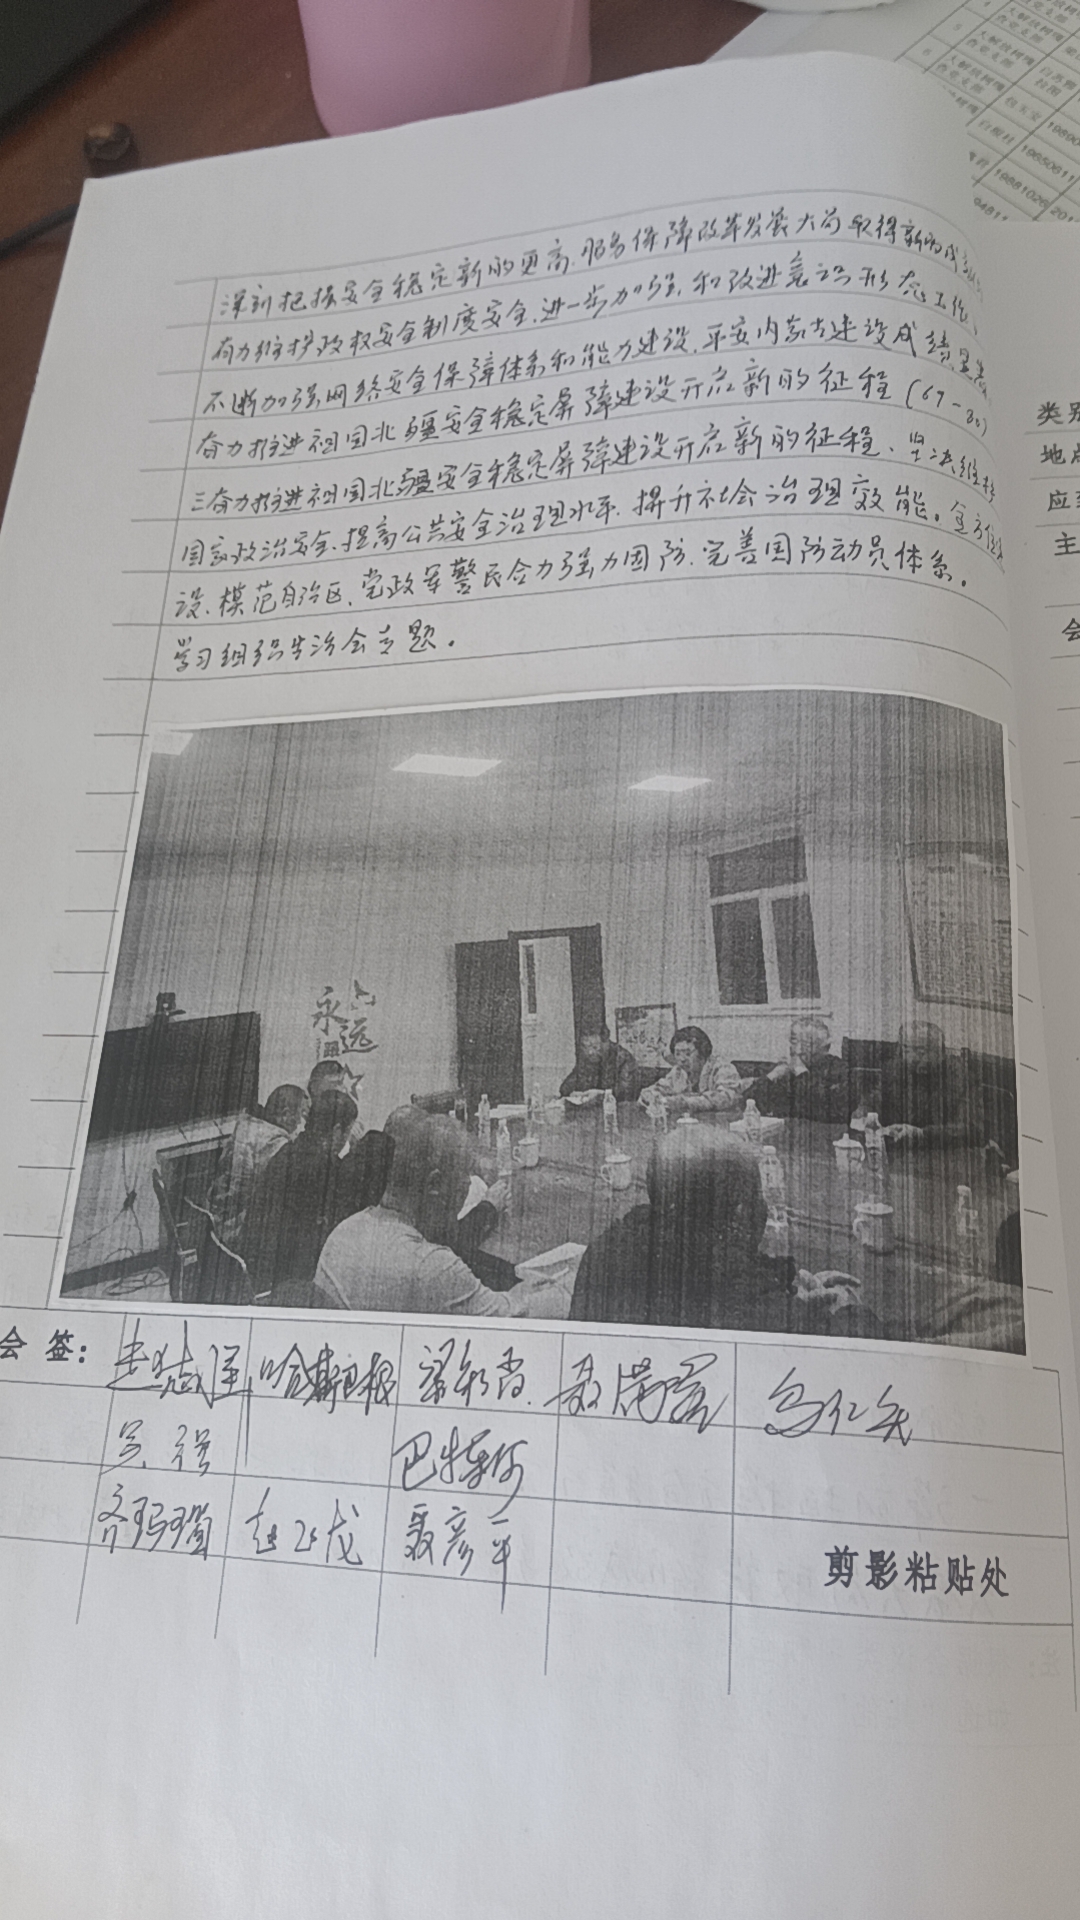 深刻把握安全稳定新的更高,服务保障改革发展大局取得新的成
有力维护政权安全制度安全,进一步加强,和改进意识形态工作,
不断加强网络安全保障体系和能力建设,平安内蒙古建设成绩显著
奋力推进祖国北疆安全稳定屏障建设开启新的征程(67-80)
三奋力推进祖国北疆安全稳定屏障建设开启新的征程、坚决维护
国家政治安全,提高公共安全治理水平,提升社会治理效能。全方位
设、模范自治区、党政军警民合力强力固防,完善国防动员体系。
学习组织生活会专题。
永远跟
会签:
哈斯巴根
吴强
巴特尔
齐玛瑙 赵飞龙 聂彦平
剪影粘贴处
类别
地点
应到
主
会
大解放树嘎
查党支部
5 大解放树嘎
查党支部
6 大解放树嘎
查党支部
19650611
19881026